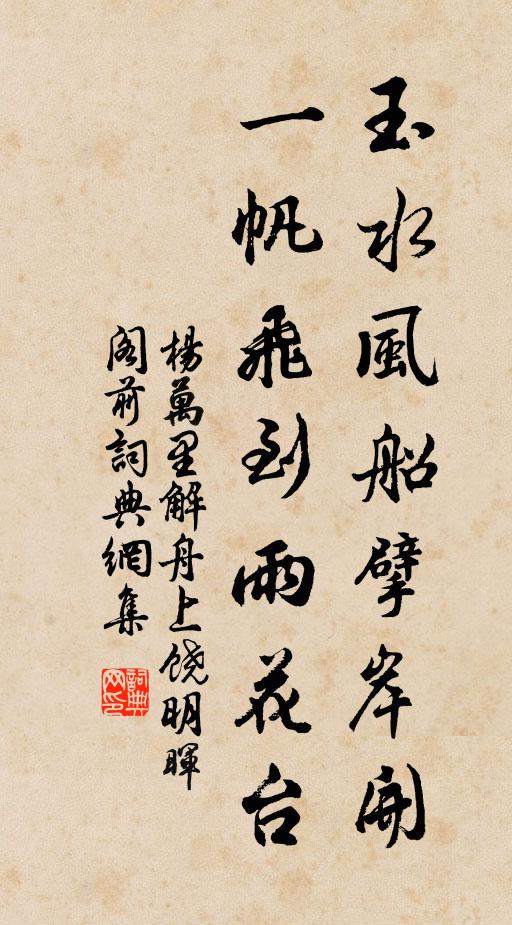 玉水風船擘岸開
一帆飛到雨花台
楊萬里解舟上饒明暉
閣前詞典網集
詞典网印